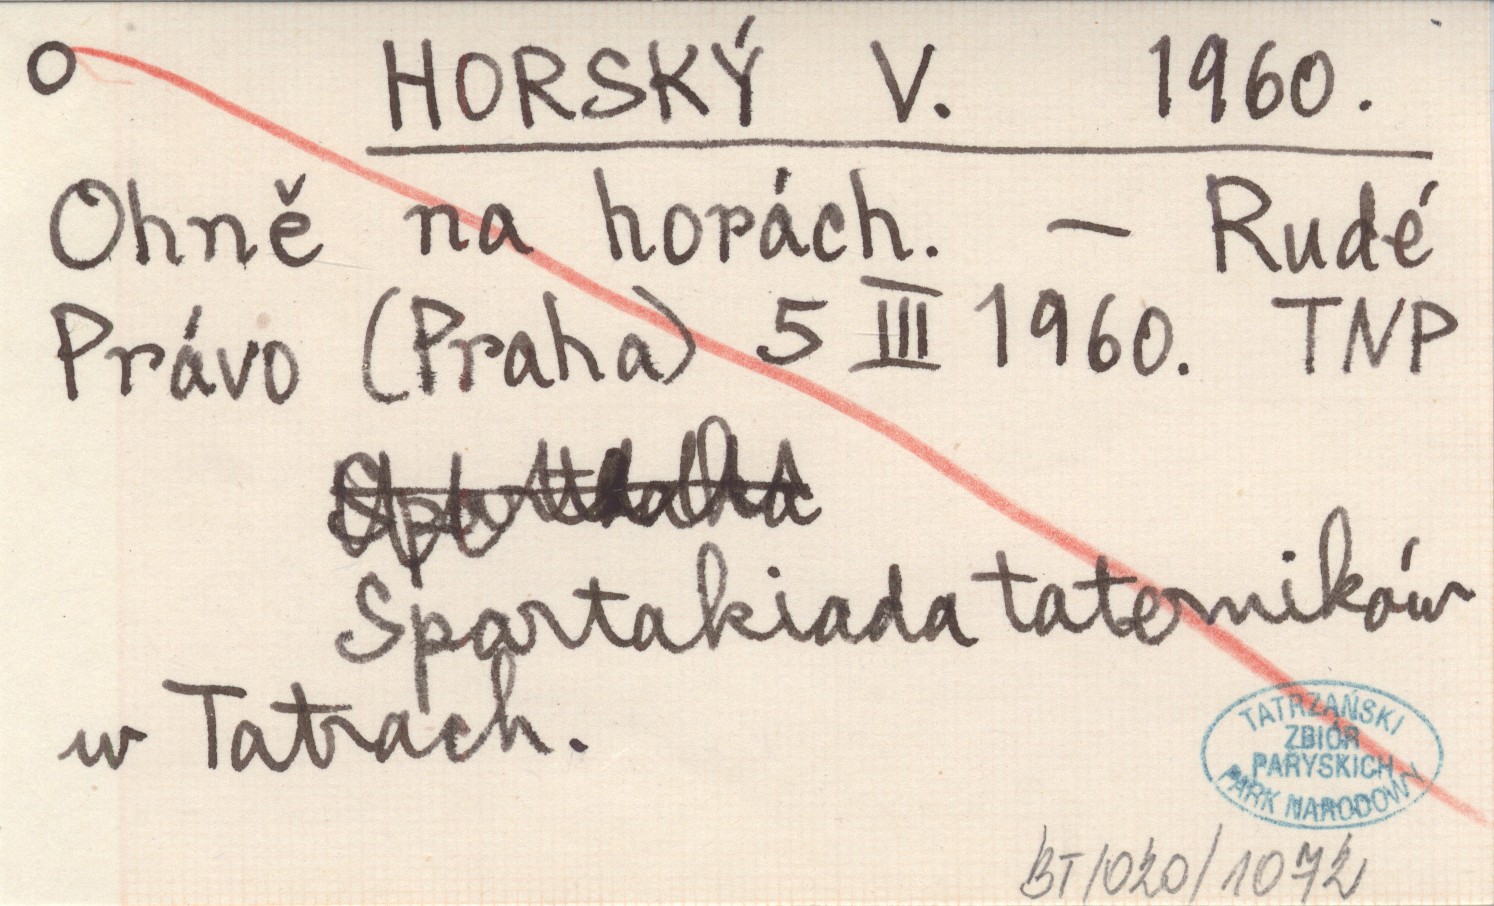 O HORSKÝ V. 1960.
Ohně na horách. — Rudé
Právo (Praha) 5 III 1960. TNP
Spartakiada taterników
w Tatrach.
TATRZAŃSKI
ZBIÓR
PARYSKICH
PARK NARODOWY
BT/020/1072